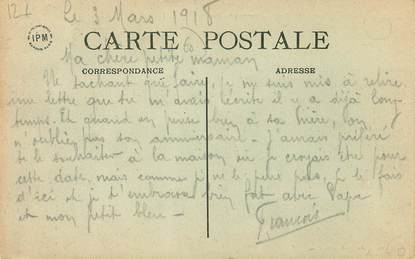 12f
Le 3 Mars 1918
IPM
CARTE POSTALE
CORRESPONDANCE
ADRESSE
Ma chère petite maman
Ne sachant que faire, je me suis mis à relire
une lettre que tu m'avais écrite il y a déjà long-
temps. Et quand on pense bien à sa mère, on
n'oublie pas son anniversaire. J'aurais préféré
te le souhaiter à la maison où je croyais être pour
cette date, mais comme je ne le peux pas, je le fais
d'ici et je t'embrasse bien fort avec Papa
et mon petit
François